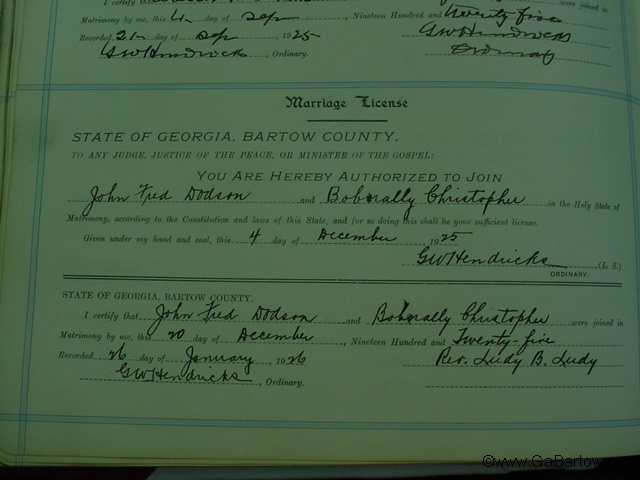 I certify that were joined in
Matrimony by me, this 21 day of Sep, Nineteen Hundred and twenty five
Recorded 21 day of Sep 1925 GW Hendricks
GW Hendricks, Ordinary. Ordinary
Marriage License
STATE OF GEORGIA, BARTOW COUNTY.
TO ANY JUDGE, JUSTICE OF THE PEACE, OR MINISTER OF THE GOSPEL:
YOU ARE HEREBY AUTHORIZED TO JOIN
John Fred Dodson and Christopher in the Holy State of
Matrimony, according to the Constitution and laws of this State, and for so doing this shall be your sufficient license.
Given under my hand and seal, this 4 day of December 1925
GW Hendricks (L. S.)
ORDINARY.
STATE OF GEORGIA, BARTOW COUNTY.
I certify that John Fred Dodson and Christopher were joined in
Matrimony by me, this 20 day of December, Nineteen Hundred and Twenty-five
Recorded 26 day of January 1926 Rev. Judy B. Judy
GW Hendricks, Ordinary.
©www.GaBartow